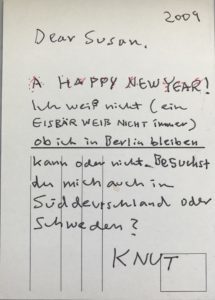 2009
Dear Susan.
A HAPPY NEW YEAR!
Ich weiß nicht (ein
EISBÄR WEIß NICHT immer)
ob ich in Berlin bleiben
kann oder nicht. Besuchst
du mich auch in
Süddeutschland oder
Schweden?
KNUT